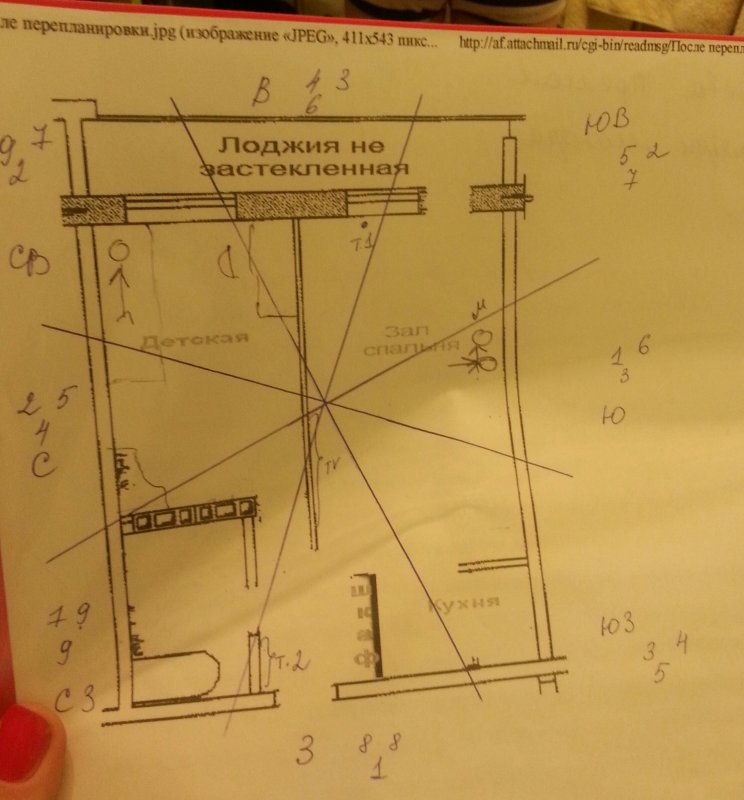 ле перепланировки.jpg (изображение «JPEG», 411x543 пикс... http://af.attachmail.ru/cgi-bin/readmsg/После перепл
В 4 3
6
ЮВ
5 2
7
9 7
2
Лоджия не
застекленная
Т.1
СВ
Детская
Зал
спальня
М
1 6
3
Ю
2 5
4
С
TV
шкаф
Кухня
7 9
9
СЗ
Т.2
ЮЗ
3 4
5
З 8 8
1